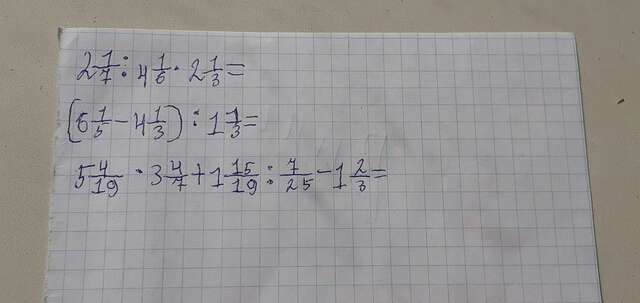 2 1/7 : 4 1/6 · 2 1/3 =
(6 1/5 - 4 1/3) : 1 1/3 =
5 4/19 · 3 4/7 + 1 15/19 : 7/25 - 1 2/3 =